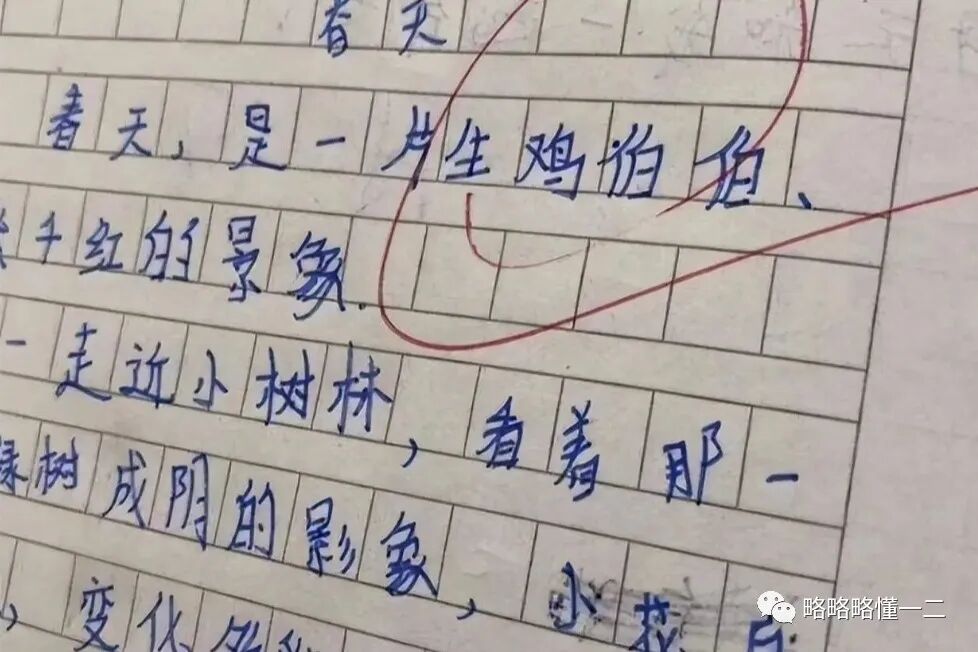 春天
春天，是一片生鸡伯伯、
千红的景象.
一走近小树林，看着那一
绿树成阴的影象，小
，变化
略略略懂一二